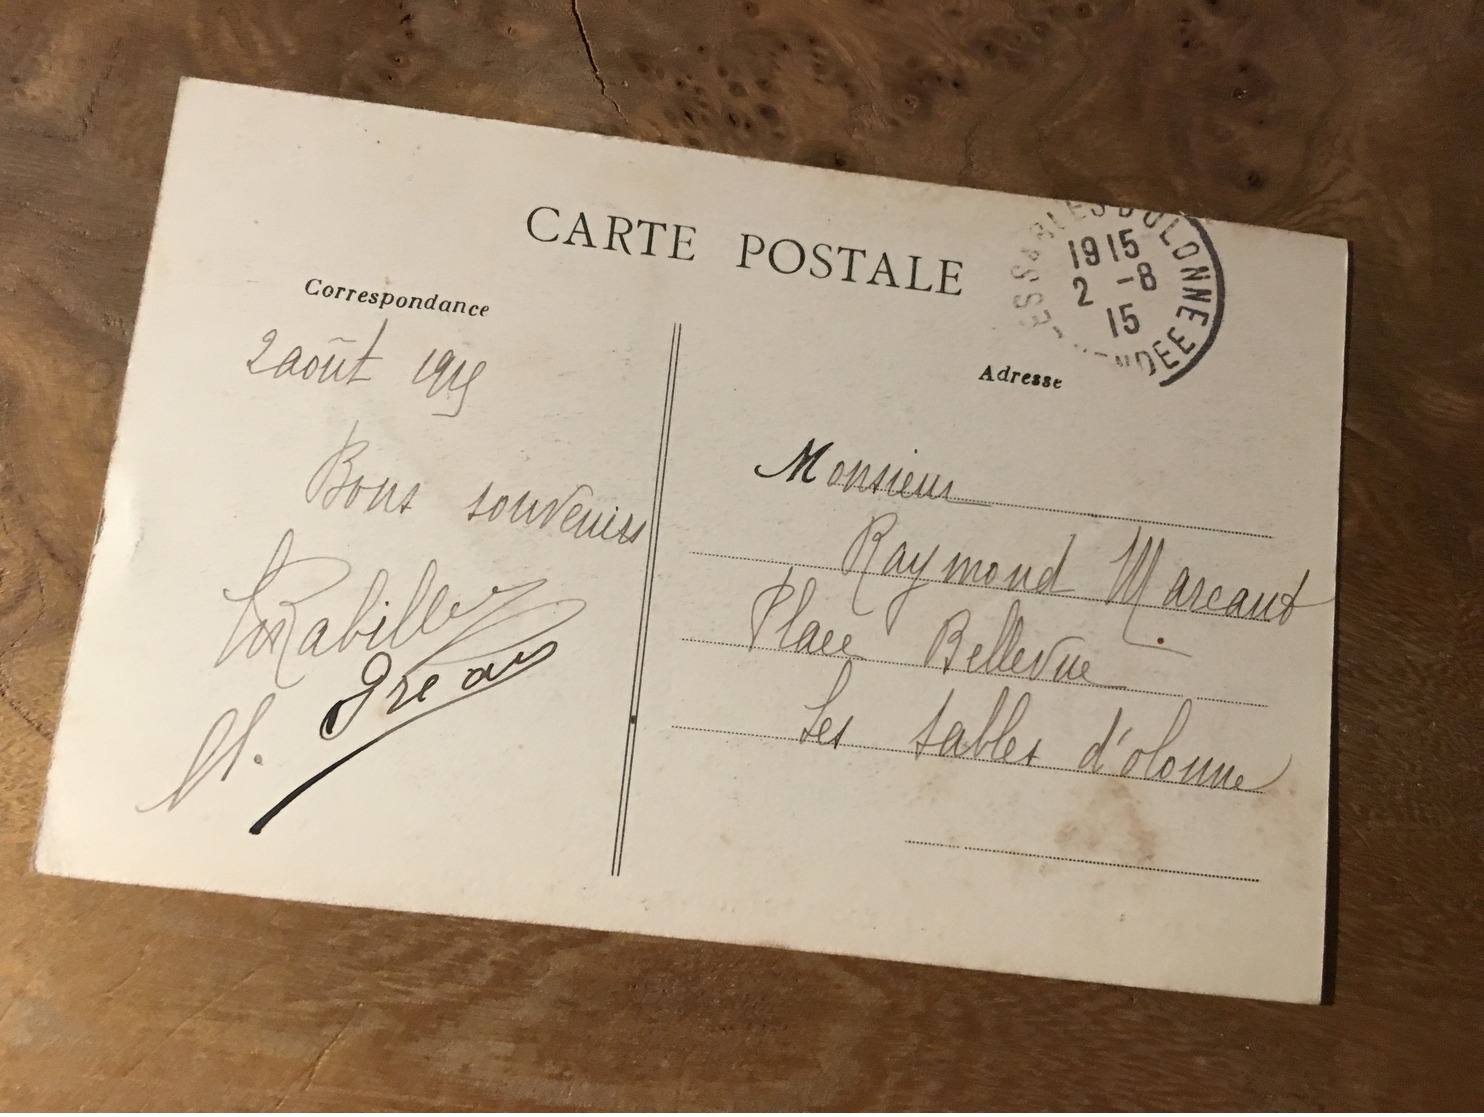 CARTE POSTALE
Correspondance
2 août 1915
Bons souvenirs
Rabiller
M. Greau
LES SABLES D'OLONNE
1915
2 -8
15
VENDEE
Adresse
Monsieur
Raymond Marcant
Place Bellevue
Les Sables d'olonne